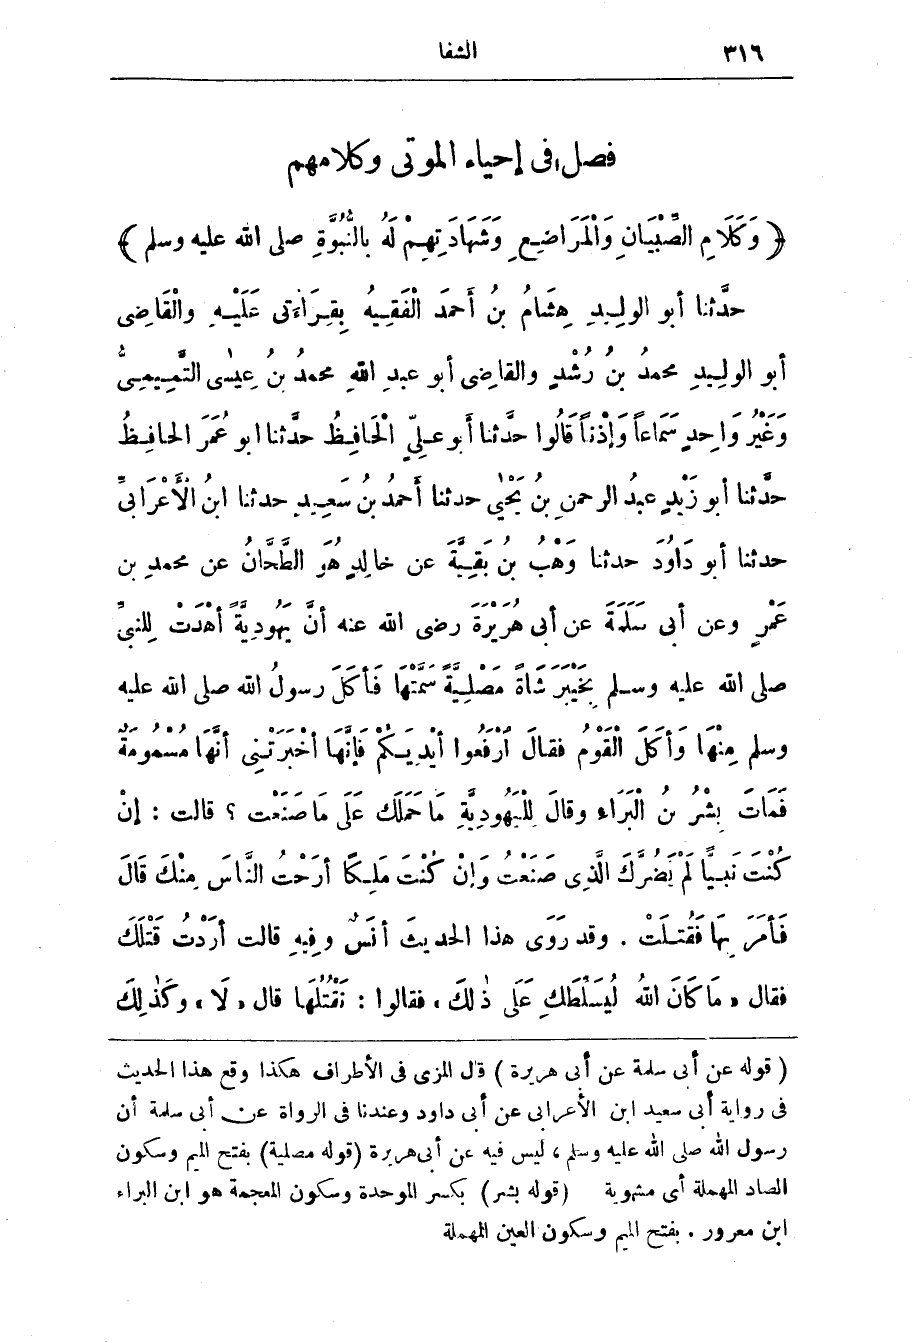 ٣١٦ الشفا
فصل فى إحياء الموتى وكلامهم
﴿ وَكَلَامِ الصِّبْيَانِ وَالْمَرَاضِيعِ وَشَهَادَتِهِمْ لَهُ بِالنُّبُوَّةِ صلى الله عليه وسلم ﴾
حدَّثنا أبو الوليدِ هِشَامُ بنُ أَحمَدَ الْفَقِيهُ بِقِرَاءَتى عَلَيْهِ والْقَاضِى
أبو الوليدِ محمدُ بنُ رُشْدٍ والقاضِى أبو عبدِ اللهِ محمدُ بن عِيسٰى التَّمِيمِىُّ
وَغَيْرُ وَاحِدٍ سَمَاعاً وَإِذْناً قَالُوا حدَّثنا أبو علىّ الْحَافِظُ حدَّثنا ابو عُمَرَ الحافِظُ
حدَّثنا أبو زَيْدٍ عبدُ الرحمنِ بنُ يَحْيٰى حدثنا أَحمدُ بنُ سَعِيدٍ حدثنا ابنُ الْأَعْرَابِىِّ
حدثنا أبو دَاوُدَ حدثنا وَهْبُ بنُ بَقِيَّةَ عن خالدٍ هُوَ الطَّحَّانُ عن محمدِ بن
عَمْرٍو وعن أبى سَلَمَةَ عن أبى هُرَيْرَةَ رضى الله عنه أنَّ يَهُودِيَّةً أَهْدَتْ لِلنبىِّ
صلى الله عليه وسلم بِخَيْبَرَ شَاةً مَصْلِيَّةً سَمَّتْهَا فَأَكَلَ رسولُ الله صلى الله عليه
وسلم مِنْهَا وَأَكَلَ الْقَوْمُ فقالَ ارْفَعُوا أيْدِيَكُمْ فَإنَّهَا أخْبَرَتْنِى أَنَّهَا مَسْمُومَةٌ
فَمَاتَ بِشْرُ بنُ الْبَرَاءِ وقالَ لِلْيَهُودِيَّةِ مَا حَمَلَكِ عَلَى مَا صَنَعْتِ ؟ قالت : إنْ
كُنْتَ نَبِيًّا لَمْ يَضُرَّكَ الَّذِى صَنَعْتُ وَإنْ كُنْتَ مَلِكًا أرَحْتُ النَّاسَ مِنْكَ قَالَ
فَأَمَرَ بِهَا فَقُتِلَتْ . وقد رَوَى هذا الحديثَ أنَسٌ وفِيهِ قالت أرَدْتُ قَتْلَكَ
فقال « مَا كَانَ اللهُ لِيُسَلِّطَكِ عَلَى ذٰلِكَ » فقالوا : نَقْتُلُهَا قال « لَا » وكَذٰلِكَ
( قوله عن أبى سلمة عن أبى هريرة ) قال المزى فى الأطراف هكذا وقع هذا الحديث
فى رواية أبى سعيد ابن الأعرابى عن أبى داود وعندنا فى الرواة عن أبى سلمة أن
رسول الله صلى الله عليه وسلم ، ليس فيه عن أبى هريرة (قوله مصلية) بفتح الميم وسكون
الصاد المهملة أى مشوية (قوله بشر) بكسر الموحدة وسكون المعجمة هو ابن البراء
ابن معرور . بفتح الميم وسكون العين المهملة